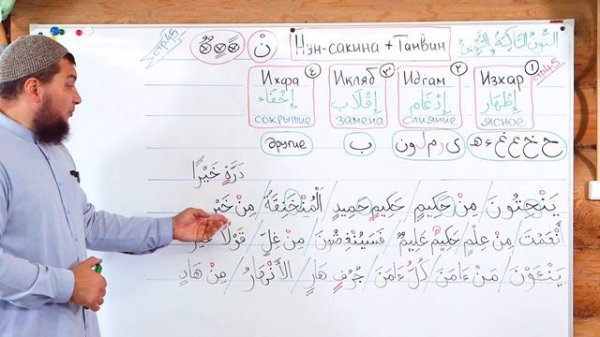 стр 45 ن Нун-сакина + Танвин النُّونُ السَّاكِنَةُ وَالتَّنْوِينُ
Ихфа ٤ Икляб ٣ Идгам ٢ Изхар ١ стр 45
إِخْفَاء إِقْلَاب إِدْغَام إِظْهَار
сокрытие замена слияние ясное
другие ب ي ر م ل و ن ح خ ع غ ء ه
ذَرَّةٍ خَيْرًا
يَنْحِتُونَ / مِنْ حَكِيمٍ / حَكِيمٍ حَمِيدٍ / الْمُنْخَنِقَةُ / مِنْ خَيْرٍ
أَنْعَمْتَ / مِنْ عِلْمٍ / حَكِيمٌ عَلِيمٌ / فَسَيُنْغِضُونَ / مِنْ غِلٍّ / قَوْلًا غَيْرَ
يَنْئَوْنَ / مَنْ ءَامَنَ / كُلٌّ ءَامَنَ / جُرُفٍ هَارٍ / الْأَنْهَارُ / مِنْ هَادٍ